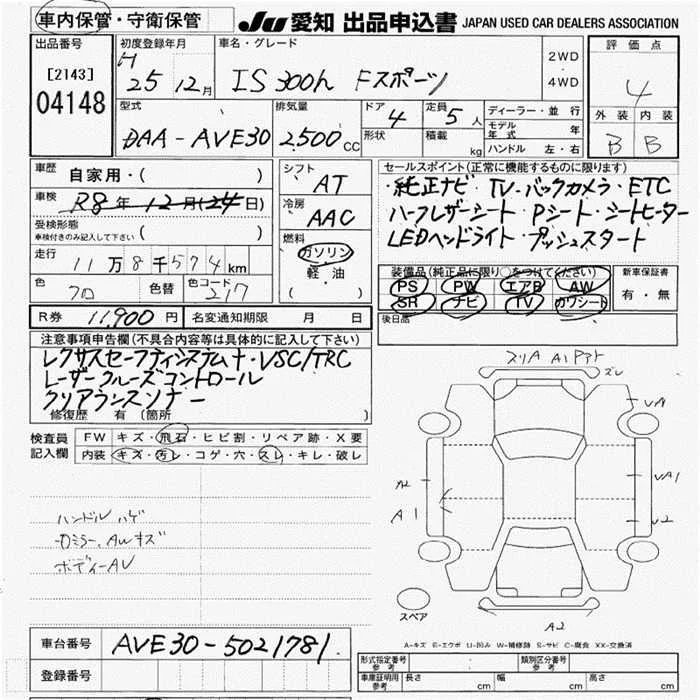 車内保管・守衛保管
JU 愛知 出品申込書 JAPAN USED CAR DEALERS ASSOCIATION
出品番号 初度登録年月 車名・グレード 評価点
[2143] H 2WD
04148 25 12月 IS 300h Fスポーツ ・ 4
4WD
型式 排気量 ドア 定員 ディーラー・並 行 外装 内装
4 5人 モデル年式 年
DAA-AVE30 2500CC 形状 積載 kg ハンドル 左・右 B B
車歴 自家用・( ) シフト AT セールスポイント(正常に機能するものに限ります)
車検 R8年12月(24日) 冷房 AAC ・純正ナビ・TV・バックカメラ・ETC
受検形態 ハーフレザーシート・Pシート・シートヒーター
車検付きのみ記入して下さい ( ) 燃料 LEDヘッドライト プッシュスタート
走行 11万8千574km ガソリン
軽・油 装備品(純正品に限り○をつけてください) 新車保証書
色 色替 色コード 217 ( ) PS PW エアB AW 有・無
SR ナビ TV カワシート
R券 11,900円 名変通知期限 月 日 後日品
注意事項申告欄(不具合内容等は具体的に記入して下さい)
レクサスセーフティシステム+・VSC/TRC
レーザークルーズコントロール
クリアランスソナー
修復歴 有 (箇所 )
検査員 FW キズ・飛石・ヒビ割・リペア跡・X要
記入欄 内装 キズ・汚レ・コゲ・穴・スレ・キレ・破レ
スリA A1
ズレ
A2
A1
A2
ハンドル ハゲ
ミラー、AWキズ
ボディーAU
スペア
A-キズ E-エクボ U-凹み W-補修跡 S-サビ C-腐食 XX-交換済
車台番号 AVE30-5021781
登録番号
形式指定番号 参考 類別区分番号 参考
車庫証明用 参考 長さ cm 幅 cm 高さ cm